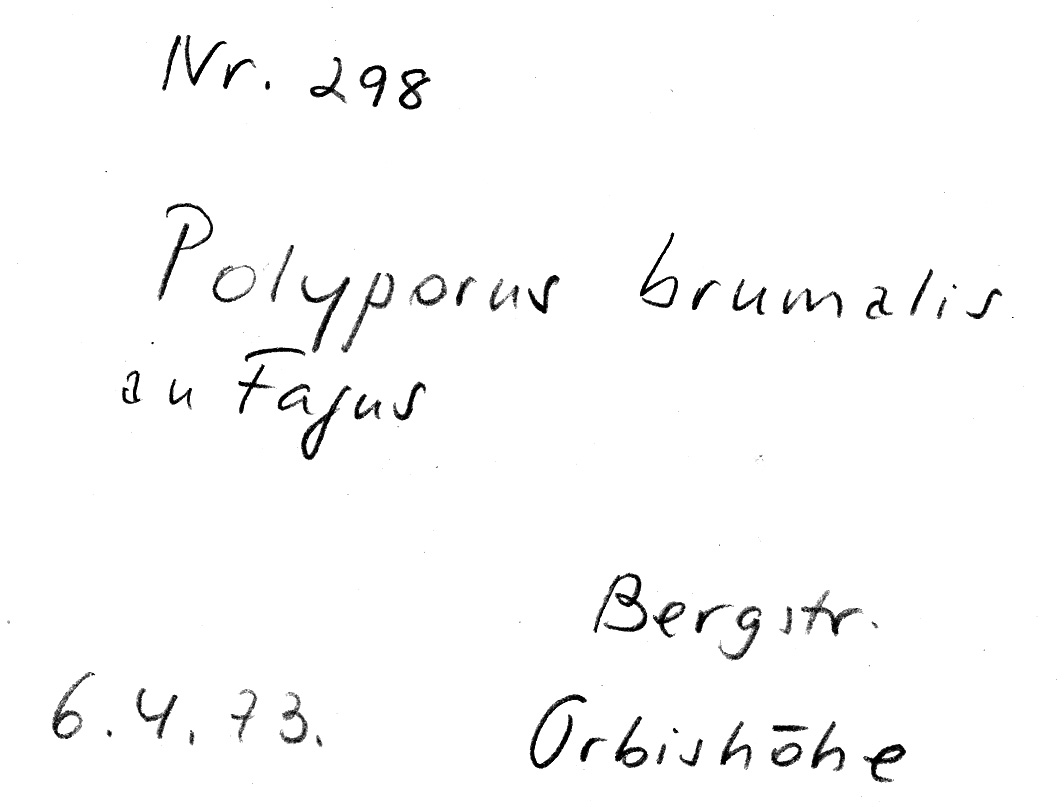 Nr. 298
Polyporus brumalis
an Fagus
Bergstr.
6.4.73.
Orbishöhe